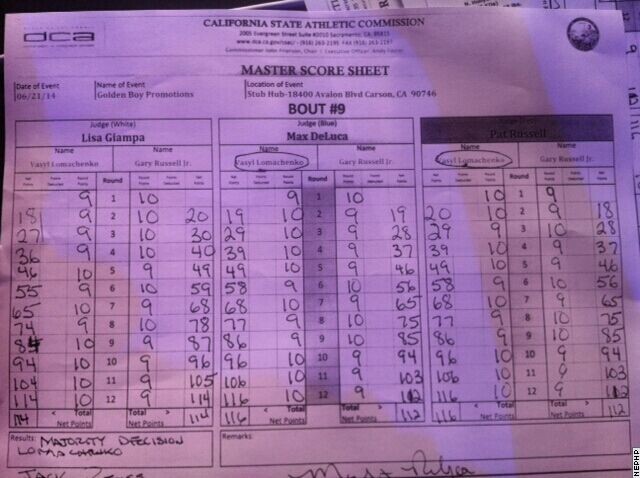 dca
CALIFORNIA STATE ATHLETIC COMMISSION
2005 Evergreen Street Suite #2010 Sacramento, CA. 95815
www.dca.ca.gov/csac/ - (916) 263-2195 FAX (916) 263-2197
Commissioner John Frierson, Chair | Executive Officer Andy Foster
MASTER SCORE SHEET
Date of Event Name of Event Location of Event
06/21/14 Golden Boy Promotions Stub Hub-18400 Avalon Blvd Carson, CA 90746
BOUT #9
Judge (White) Judge (Blue)
Lisa Giampa Max DeLuca Pat Russell
Name Name Name Name Name Name
Vasyl Lomachenko Gary Russell Jr. Vasyl Lomachenko Gary Russell Jr. Vasyl Lomachenko Gary Russell Jr.
Net Points Deducted Round Round Round Points Deducted Net Net Points Deducted Round Round Round Points Deducted Net Net Points Deducted Round Round Round Points Deducted Net
9 1 10 9 1 10 10 1 9
18 9 2 10 20 19 10 2 9 19 20 10 2 9 18
27 9 3 10 30 29 10 3 9 28 29 9 3 10 28
36 9 4 10 40 39 10 4 9 37 39 10 4 9 37
46 10 5 9 49 49 10 5 9 46 49 10 5 9 46
55 9 6 10 59 58 9 6 10 56 58 9 6 10 56
65 10 7 9 68 68 10 7 9 65 68 10 7 9 65
74 9 8 10 78 77 9 8 10 75 77 9 8 10 75
84 10 9 9 87 86 9 9 10 85 86 9 9 10 85
94 10 10 9 96 96 10 10 9 94 96 10 10 9 94
104 10 11 9 105 106 10 11 9 103 106 10 11 9 103
114 10 12 9 114 116 10 12 9 112 116 10 12 9 112
< Total Total > < Total Total > < Total Total >
114 Net Points Net Points 114 116 Net Points Net Points 112 116 Net Points Net Points 112
Results: MAJORITY DECISION Remarks:
LOMACHENKO
NEPHP